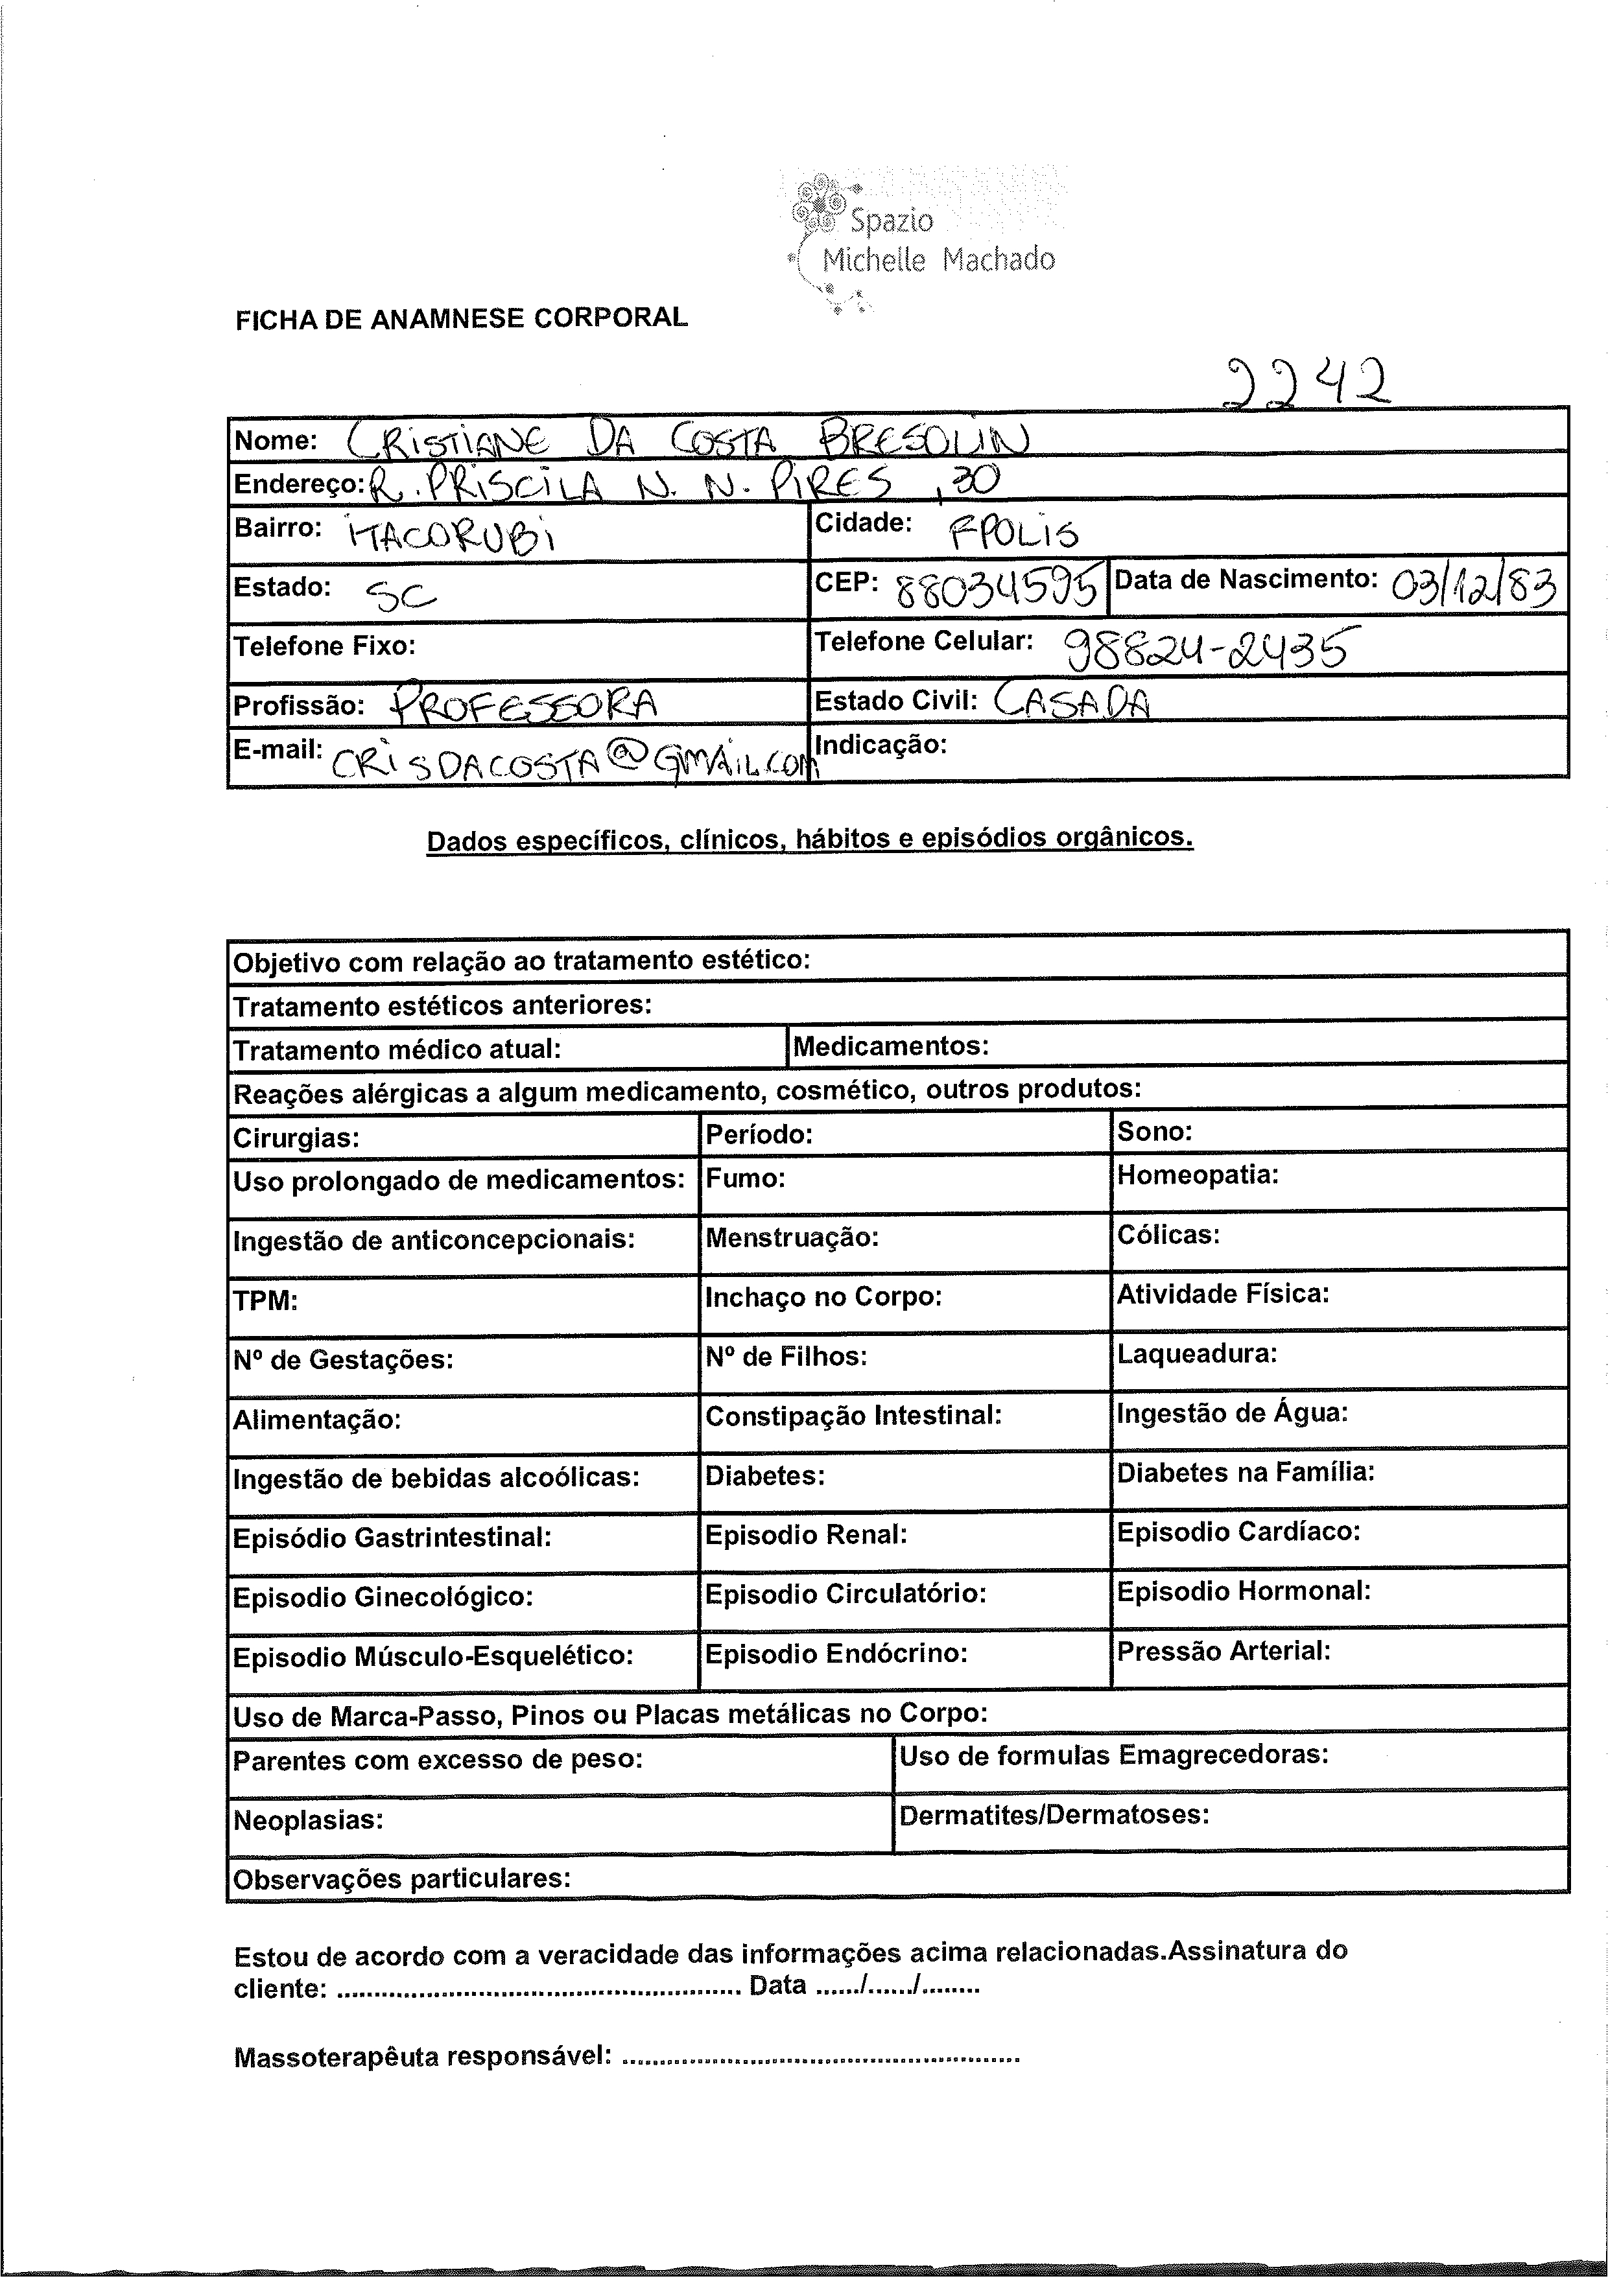 Spazio
Michelle Machado
FICHA DE ANAMNESE CORPORAL
2242
Nome: CRISTIANE DA COSTA BRESOLIN
Endereço: R. PRISCILA N. N. PIRES, 30
Bairro: ITACORUBI Cidade: FPOLIS
Estado: SC CEP: 88034595 Data de Nascimento: 03/12/83
Telefone Fixo: Telefone Celular: 98824-2435
Profissão: PROFESSORA Estado Civil: CASADA
E-mail: CRISDACOSTA@GMAIL.COM Indicação:
Dados específicos, clínicos, hábitos e episódios orgânicos.
Objetivo com relação ao tratamento estético:
Tratamento estéticos anteriores:
Tratamento médico atual: Medicamentos:
Reações alérgicas a algum medicamento, cosmético, outros produtos:
Cirurgias: Período: Sono:
Uso prolongado de medicamentos: Fumo: Homeopatia:
Ingestão de anticoncepcionais: Menstruação: Cólicas:
TPM: Inchaço no Corpo: Atividade Física:
Nº de Gestações: Nº de Filhos: Laqueadura:
Alimentação: Constipação Intestinal: Ingestão de Água:
Ingestão de bebidas alcoólicas: Diabetes: Diabetes na Família:
Episódio Gastrintestinal: Episodio Renal: Episodio Cardíaco:
Episodio Ginecológico: Episodio Circulatório: Episodio Hormonal:
Episodio Músculo-Esquelético: Episodio Endócrino: Pressão Arterial:
Uso de Marca-Passo, Pinos ou Placas metálicas no Corpo:
Parentes com excesso de peso: Uso de formulas Emagrecedoras:
Neoplasias: Dermatites/Dermatoses:
Observações particulares:
Estou de acordo com a veracidade das informações acima relacionadas.Assinatura do
cliente: ...................................................... Data ....../....../........
Massoterapêuta responsável: .....................................................